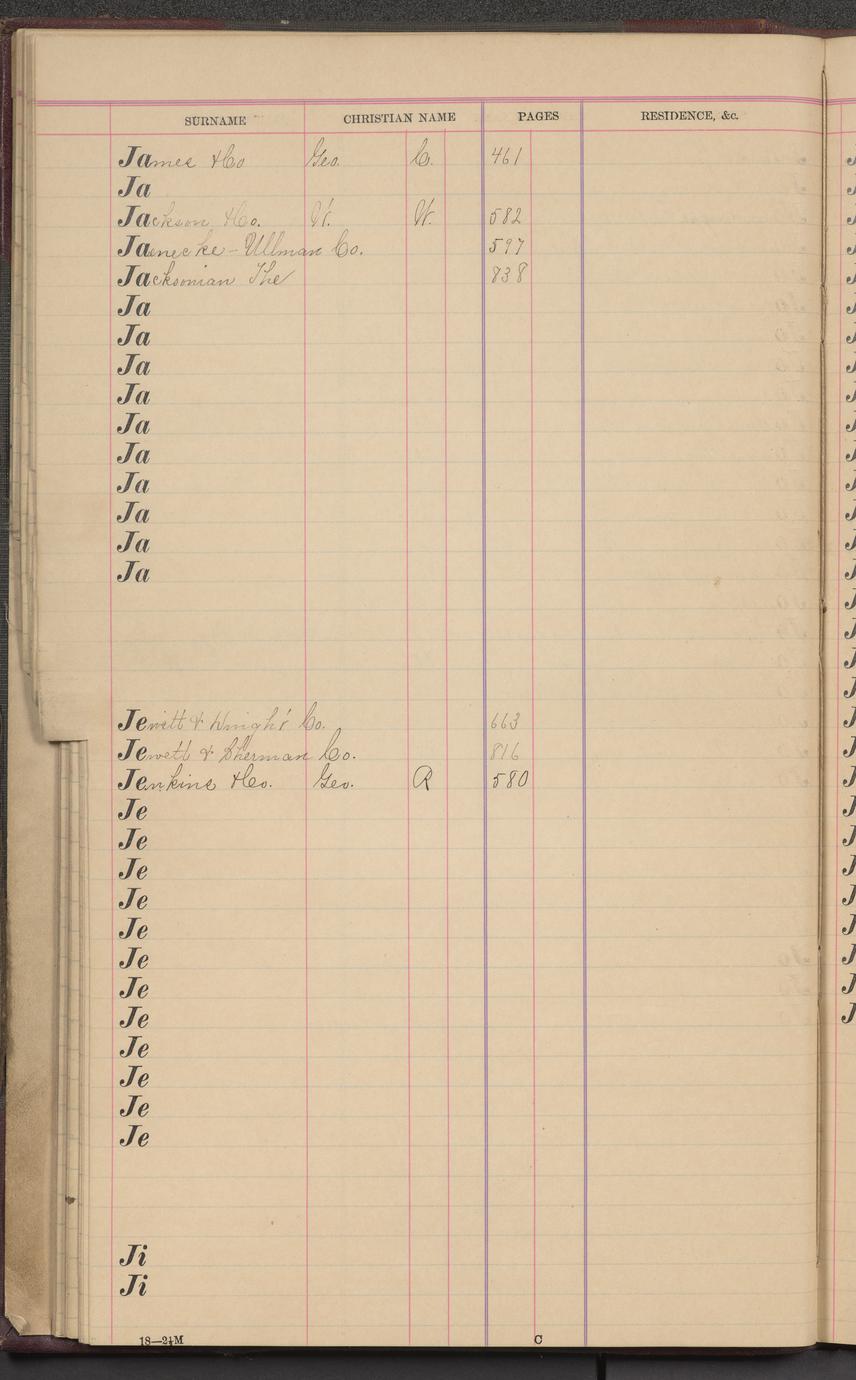 SURNAME CHRISTIAN NAME PAGES RESIDENCE, &c.
James & Co Geo. C. 461
Ja
Jackson & Co. W. W. 582
Jaenecke-Ullman Co. 597
Jacksonian The 838
Ja
Ja
Ja
Ja
Ja
Ja
Ja
Ja
Ja
Ja
Jewett & Wright Co. 663
Jewett & Sherman Co. 816
Jenkins & Co. Geo. R 580
Je
Je
Je
Je
Je
Je
Je
Je
Je
Je
Je
Je
Ji
Ji
18—2½M C